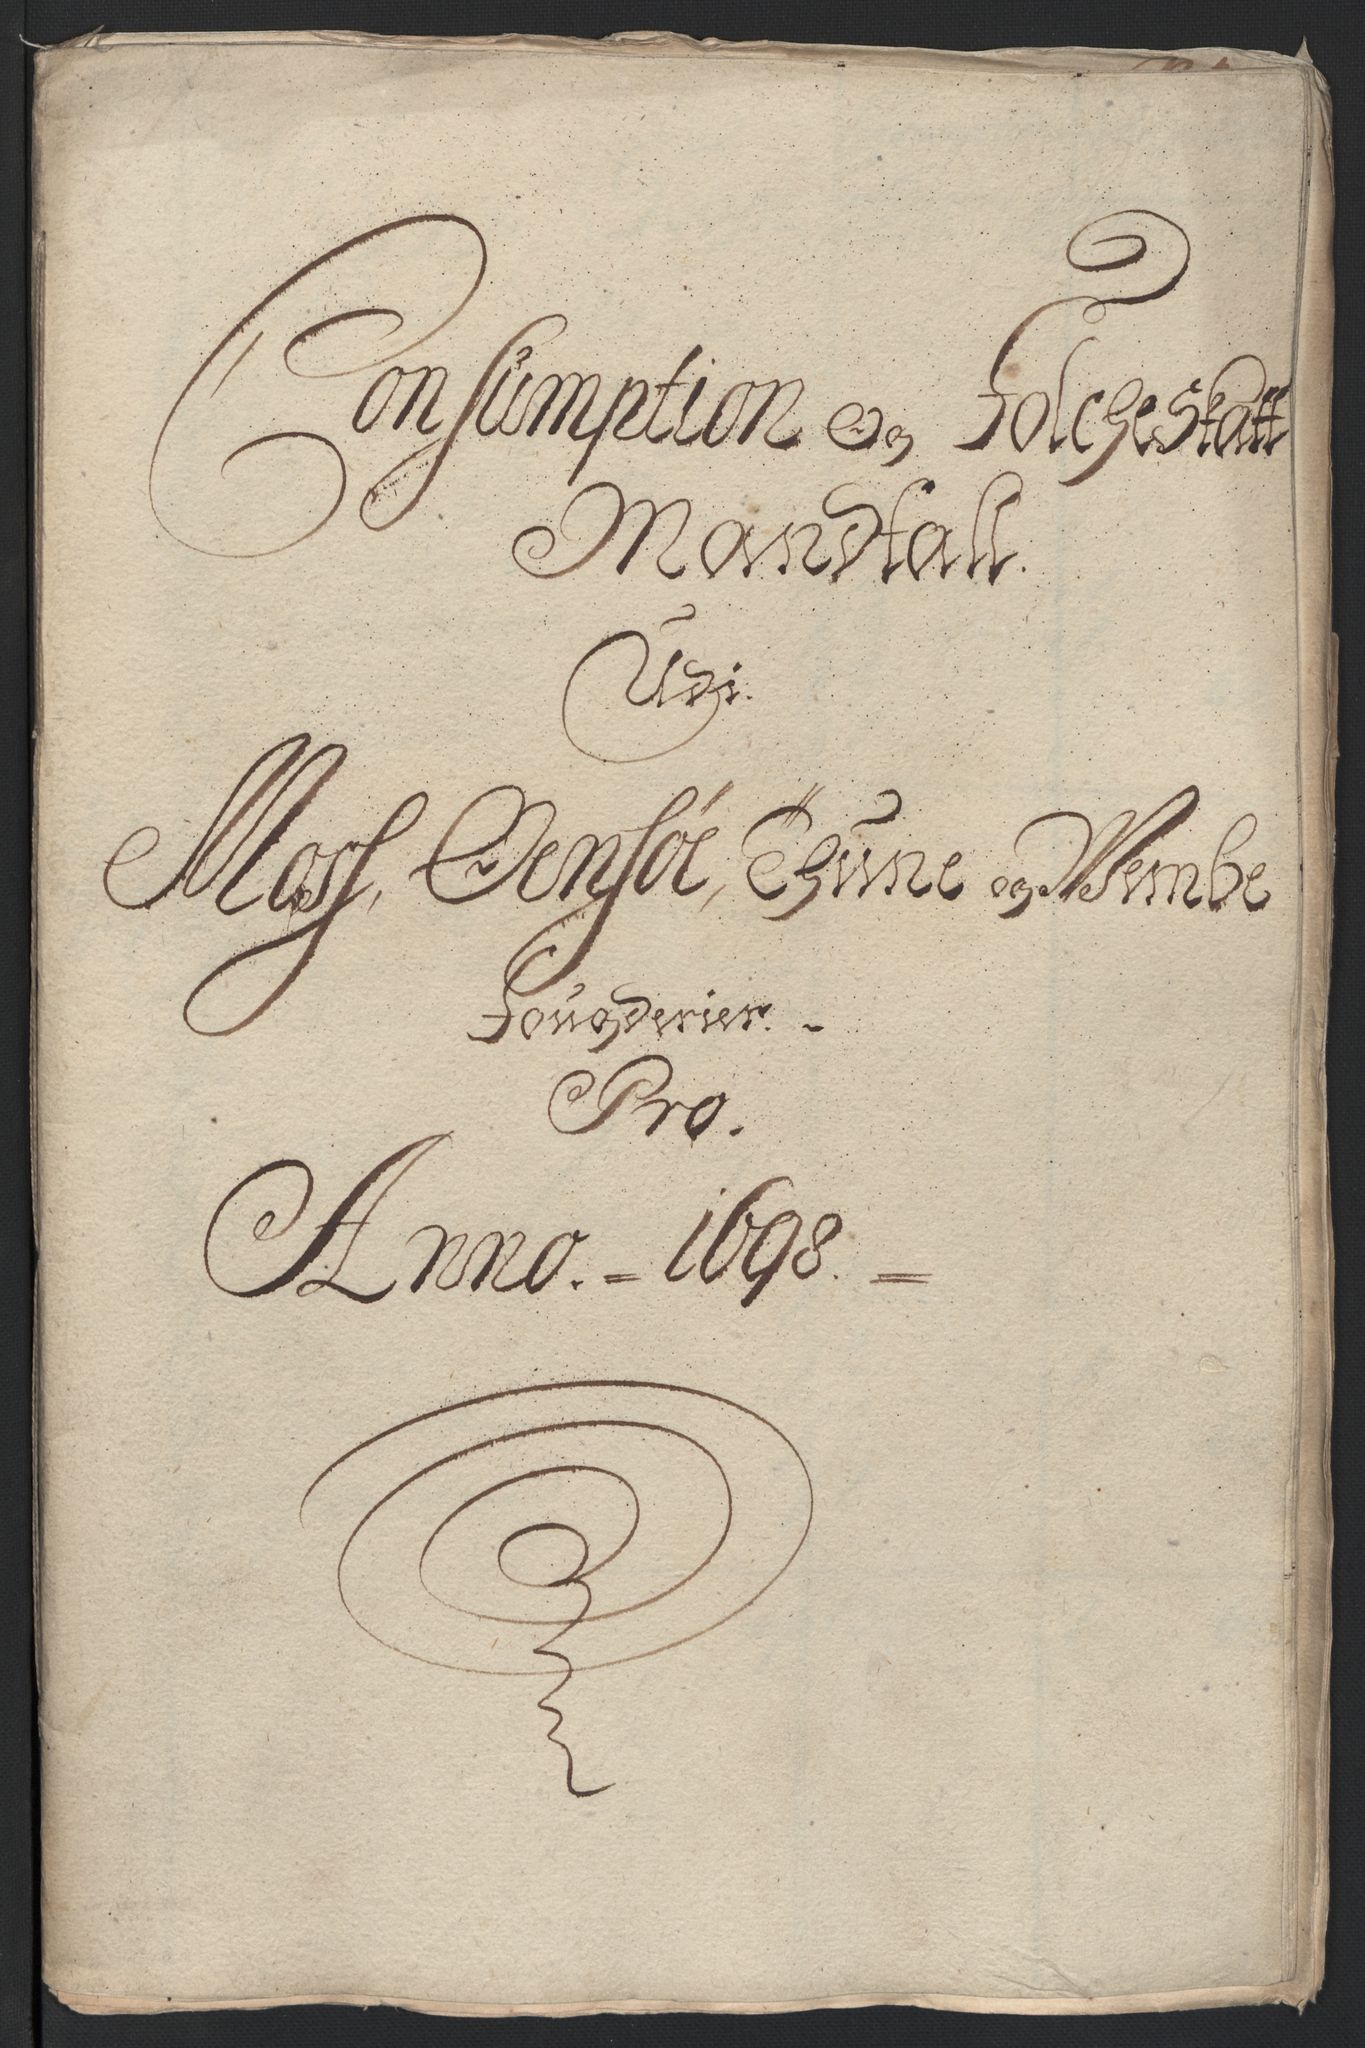 Consumption og Folcheskatt
Mandtall.
Udi.
Moss, Oensöe, Thune og Wembe
Fougderier. -
Pro.
Anno. = 1698. =